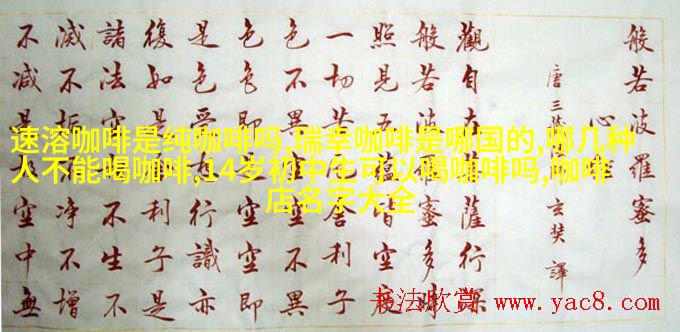 般若波羅蜜多
心
唐三藏玄奘譯
觀自在薩行深
般若波蜜多時
照見五蘊皆空度
一切苦舍利子
色不異空不異
色色即空即
是色受行識亦
復如是利子是
諸法空不生不
滅不垢淨不增
不減是空中無
速溶咖啡是纯咖啡吗,瑞幸咖啡是哪国的,哪几种
人不能喝咖啡,14岁初中生可以喝咖啡吗,咖啡
店名字大全
书法欣赏 www.yac8.com